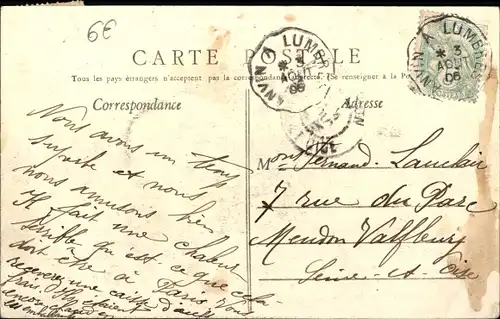 6€
CARTE POSTALE
Tous les pays étrangers n'acceptent pas la correspondance (Se renseigner à la Po
Correspondance
Adresse
ANVIN A LUMBRES
3
AOUT
06
ANVIN A LUMBRES
3
AOUT
06
Nous avons un temps
superbe et nous
nous amusons bien
Il fait une chaleur
terrible qu'est ce que cela
doit être à Paris. Vous
recevrez une caisse d'œufs
frais.
Monsieur Fernand Lauclair
7 rue du Parc
Meudon Valfleury
Seine-et-Oise